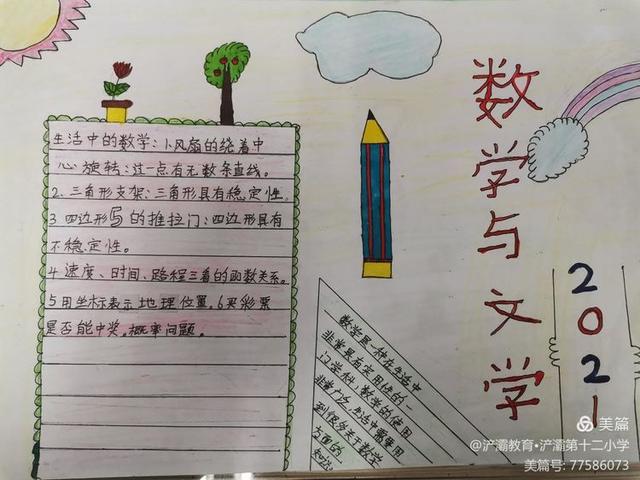 生活中的数学:1.风扇的绕着中
心旋转:过一点有无数条直线。
2.三角形支架:三角形具有稳定性.
3.四边形写的推拉门:四边形具有
不稳定性。
4.速度、时间、路程三者的函数关系。
5用坐标表示地理位置。6买彩票
是否能中奖。概率问题。
数学与文学
2021
数学是一种在生活中
非常具有实用性的一
门学科,数学的使用
非常广泛,生活中需要用
到很多关于数学
方面的
知识。
美篇
@浐灞教育·浐灞第十二小学
美篇号: 77586073